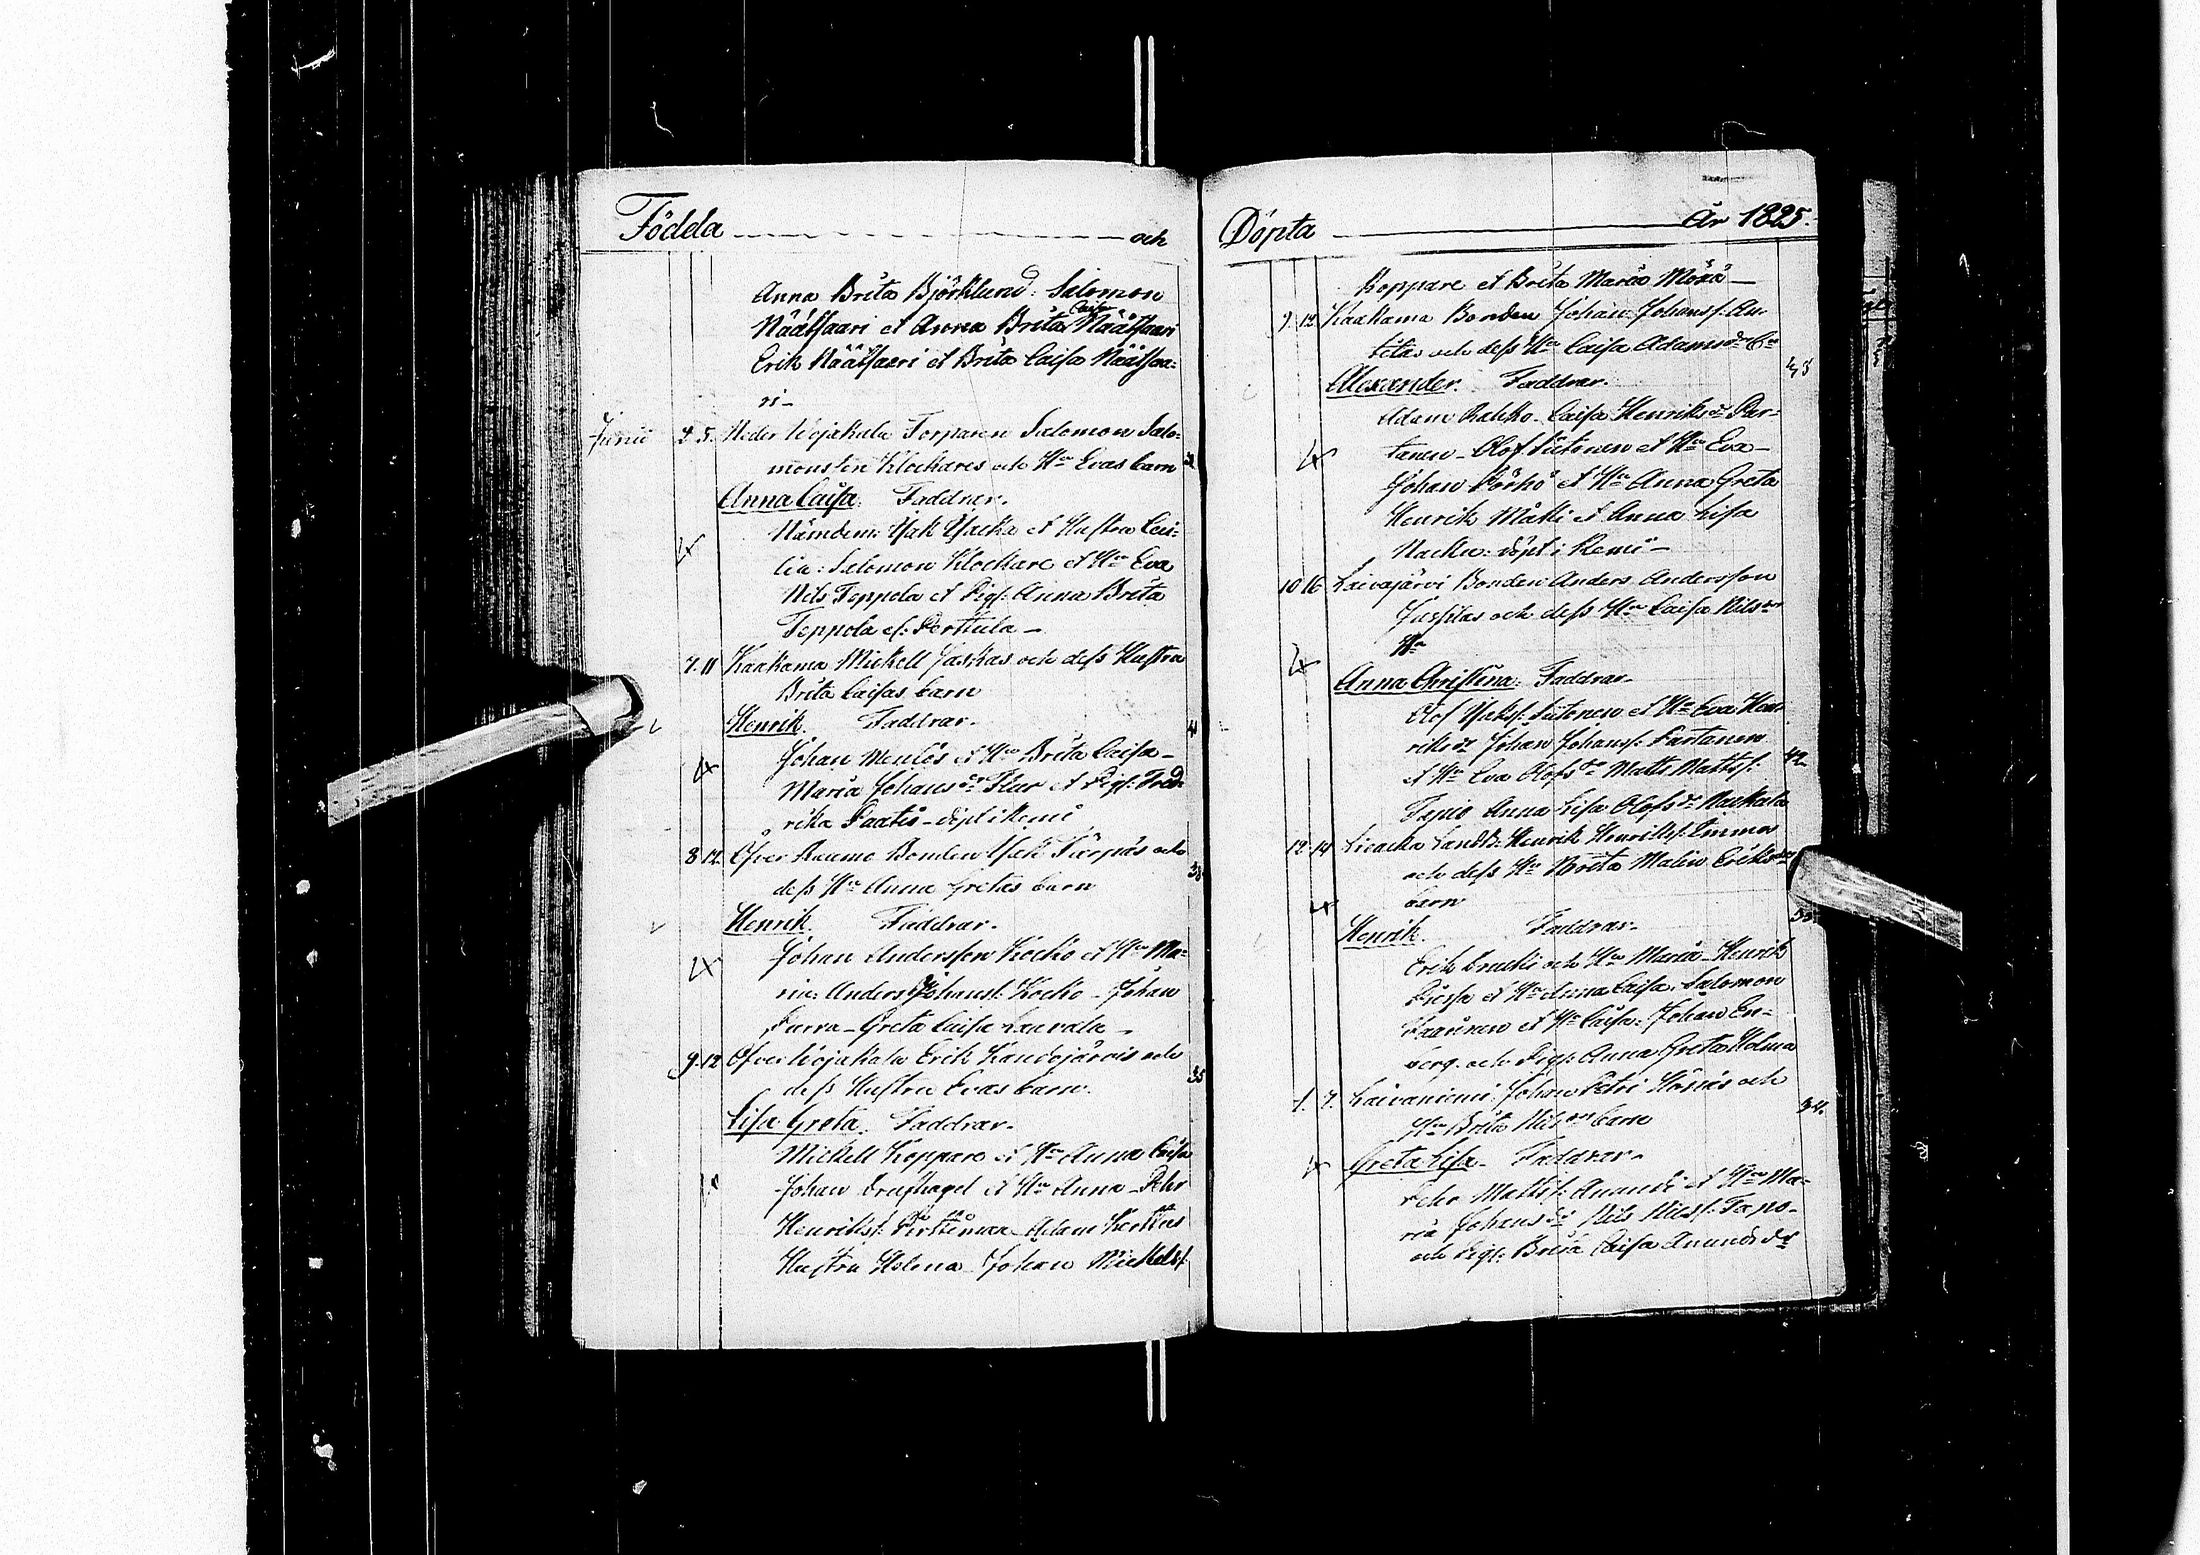 Födda och
Anna Brita Björklund: Salomon
Näätsaari et Anna Brita Caisa Näätsaari
Erik Näätsaari et Brita Caisa Näätsaa-
ri -
Junii 2. 5. Neder Wojakala Torparen Salomon Salo-
monsson Klockares och Hu Evas barn
Anna Caisa. Faddrar.
Nämdem: Isak et Hustru Ceci-
lia: Salomon Klockare et Hu Eva
Nils Teppola et Pig: Anna Brita
Teppola el: Perttula -
7. 11 Kaakama Mickell Jaskas och dess Hustru
Brita Caisas barn
Henrik. Faddrar. 41
Johan et Hu Brita Caisa -
Maria Johansdr et Pig: Fred-
rika Paatis - döpt i Kemi
8 12. Öfver Raumo Bonden Isak och 38
dess Hu Anna Gretas barn
Henrik. Faddrar.
Johan Andersson Kocko et Hu Ma-
ria: Anders Johans: Kocko - Johan
Furra - Greta Caisa Laurala -
9. 12 Öfver Wojakala Erik Kandojärvis och 35
dess Hustru Evas barn.
Lisa Greta. Faddrar.
Mickell Koppare et Hu Anna Caisa
Johan et Hu Anna - Pehr
Henrikss: Adam Kerttus
Hustru Helena - Johan Mickelss
Döpta År 1825.
Koppare et Brita Maria
9. 12. Kaakama Bonden Johan Johanss: An-
tilas och dess Hu Caisa Adamsdr Bn
Alexander. Faddrar.
Adam Caisa Henriksdr Par-
tanen - Olof et Hu Eva -
Johan Pörhö et Hu Anna Greta
Henrik Mäki et Anna Lisa
döpt i Kemi -
10 16 Laivajärvi Bonden Anders Andersson
Jussilas och dess Hu Caisa Nilsdr
Bn
Anna Christina. Faddrar.
Olof Isakss: et Hu Eva Hen-
riksdr Johan Johanss: Partanen
et Hu Eva Olofsdr Matts Mattss: 42.
Tapio Anna Lisa Olofsdr
12. 14 Henrik Henrikss:
och dess Hu Brita Malin Eriksdr
barn
Henrik. Faddrar.
Erik och Hu Maria - Henrik
et Hu Anna Caisa. Salomon
et Hu Caisa: Johan En-
berg. och Pig: Anna Greta Holma
1. 7. Laivaniemi: Johan Petri och 34.
Hu Brita Nilsdr barn
Greta Lisa. Faddrar.
Pehr Mattss: Anundi et Hu Ma-
ria Johansdr Nils Nilss: Tapo-
och Pig: Brita Caisa Anundsdr